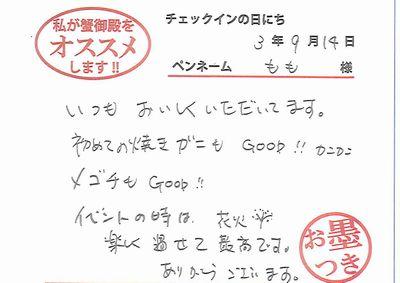 私が蟹御殿を
オススメ
します!!
チェックインの日にち
3年9月14日
ペンネーム もも 様
いつも おいしくいただいてます。
初めての焼きガニも GOOD!! カニカニ
メゴチも GOOD!!
イベントの時は 花火
楽しく過せて最高です。
ありがとうございます。
お墨
つき